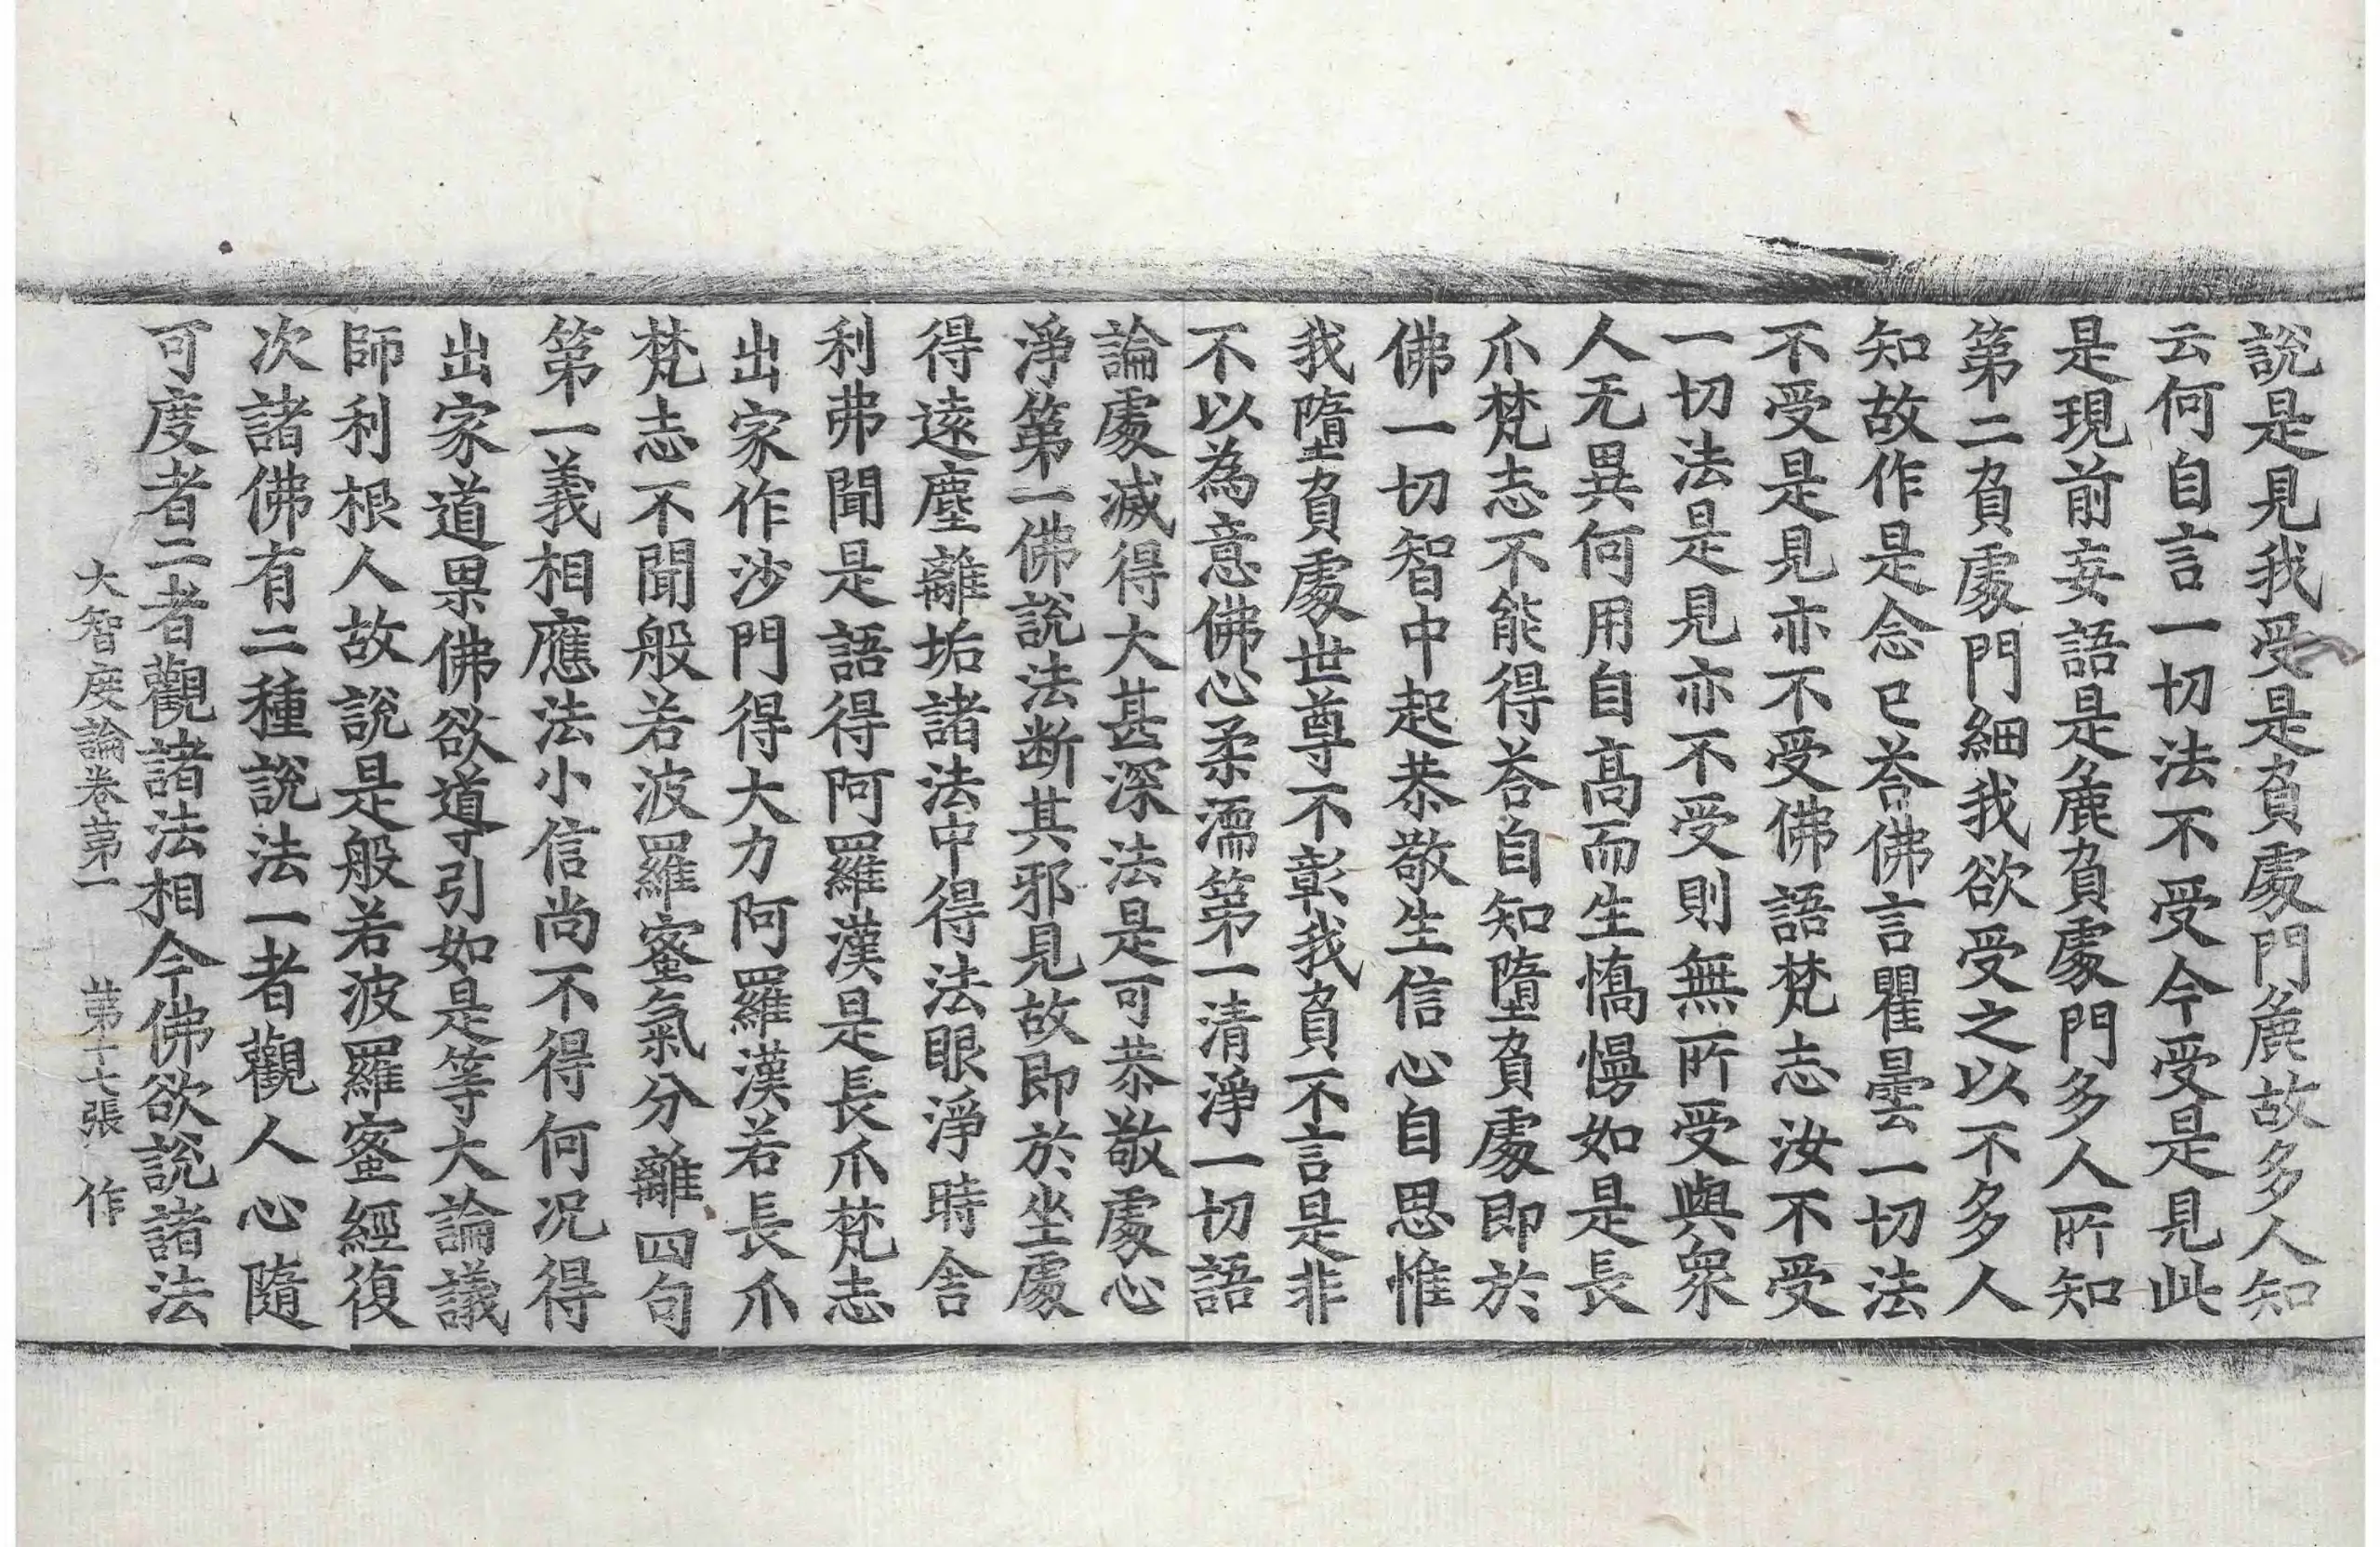 說是見我受是負處門麁故多人知
云何自言一切法不受今受是見此
是現前妄語是麁負處門多人所知
第二負處門細我欲受之以不多人
知故作是念已荅佛言瞿曇一切法
不受是見亦不受佛語梵志汝不受
一切法是見亦不受則無所受與衆
人无異何用自高而生憍慢如是長
爪梵志不能得荅自知墮負處即於
佛一切智中起恭敬生信心自思惟
我墮負處世尊不彰我負不言是非
不以為意佛心柔濡第一清淨一切語
論處滅得大甚深法是可恭敬處心
淨第一佛說法断其邪見故即於坐處
得遠塵離垢諸法中得法眼淨時舍
利弗聞是語得阿羅漢是長爪梵志
出家作沙門得大力阿羅漢若長爪
梵志不聞般若波羅蜜氣分離四句
第一義相應法小信尚不得何况得
出家道果佛欲導引如是等大論議
師利根人故說是般若波羅蜜經復
次諸佛有二種說法一者觀人心隨
可度者二者觀諸法相今佛欲說諸法
大智度論卷第一 第十七張 作